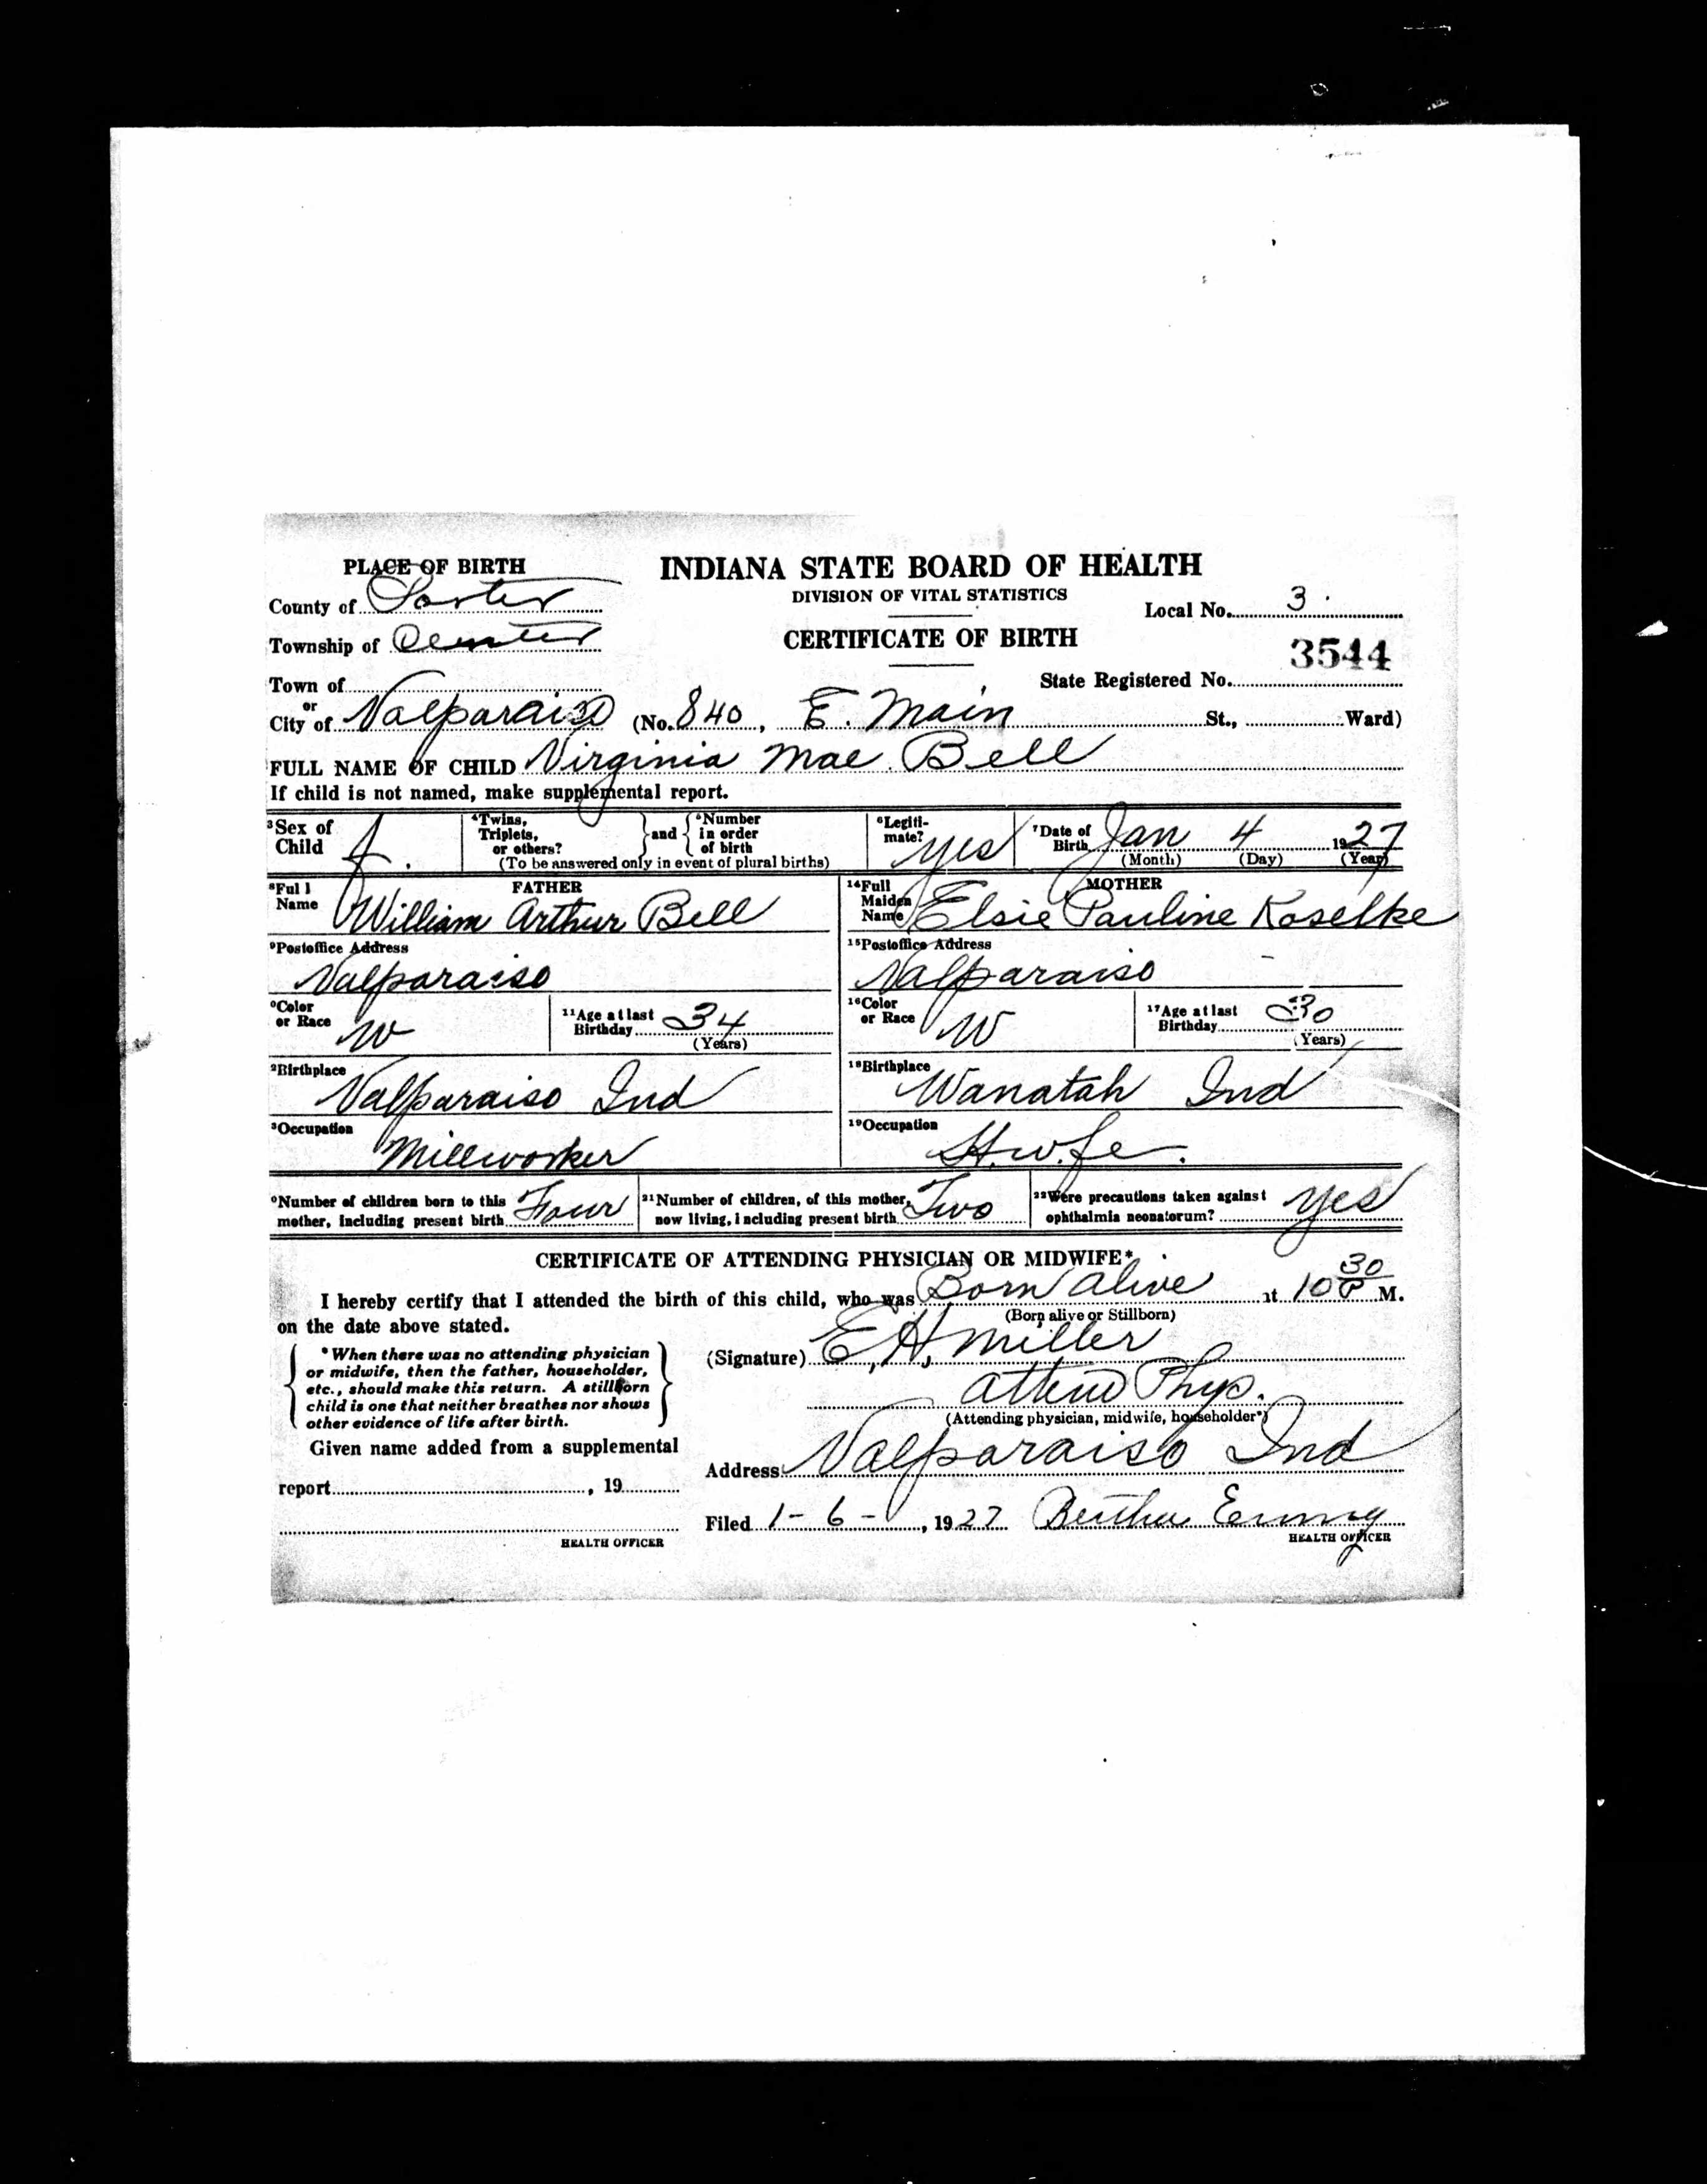 PLACE OF BIRTH
INDIANA STATE BOARD OF HEALTH
County of Porter
DIVISION OF VITAL STATISTICS
Local No. 3
Township of Center
CERTIFICATE OF BIRTH
3544
Town of
State Registered No.
or
City of Valparaiso (No. 840, E. Main St., Ward)
FULL NAME OF CHILD Virginia Mae Bell
If child is not named, make supplemental report.
3 Sex of Child f.
4 Twins, Triplets, or others? and 5 Number in order of birth
(To be answered only in event of plural births)
6 Legitimate? yes
7 Date of Birth Jan 4 1927
(Month) (Day) (Year)
8 Full Name FATHER
William Arthur Bell
14 Full Maiden Name MOTHER
Elsie Pauline Koselke
9 Postoffice Address
Valparaiso
15 Postoffice Address
Valparaiso
0 Color or Race W
11 Age at last Birthday 34
(Years)
16 Color or Race W
17 Age at last Birthday 30
(Years)
2 Birthplace
Valparaiso Ind
18 Birthplace
Wanatah Ind
3 Occupation
Millworker
19 Occupation
H.wfe.
0 Number of children born to this mother, including present birth Four
21 Number of children, of this mother, now living, including present birth Two
22 Were precautions taken against ophthalmia neonatorum? yes
CERTIFICATE OF ATTENDING PHYSICIAN OR MIDWIFE*
I hereby certify that I attended the birth of this child, who was Born alive at 10 30 P M.
(Born alive or Stillborn)
on the date above stated.
* When there was no attending physician
or midwife, then the father, householder,
etc., should make this return. A stillborn
child is one that neither breathes nor shows
other evidence of life after birth.
(Signature) E. H. Miller
attend Phys.
(Attending physician, midwife, householder*)
Given name added from a supplemental
report, 19
Address Valparaiso Ind
Filed 1-6-, 1927 Bertha
HEALTH OFFICER
HEALTH OFFICER